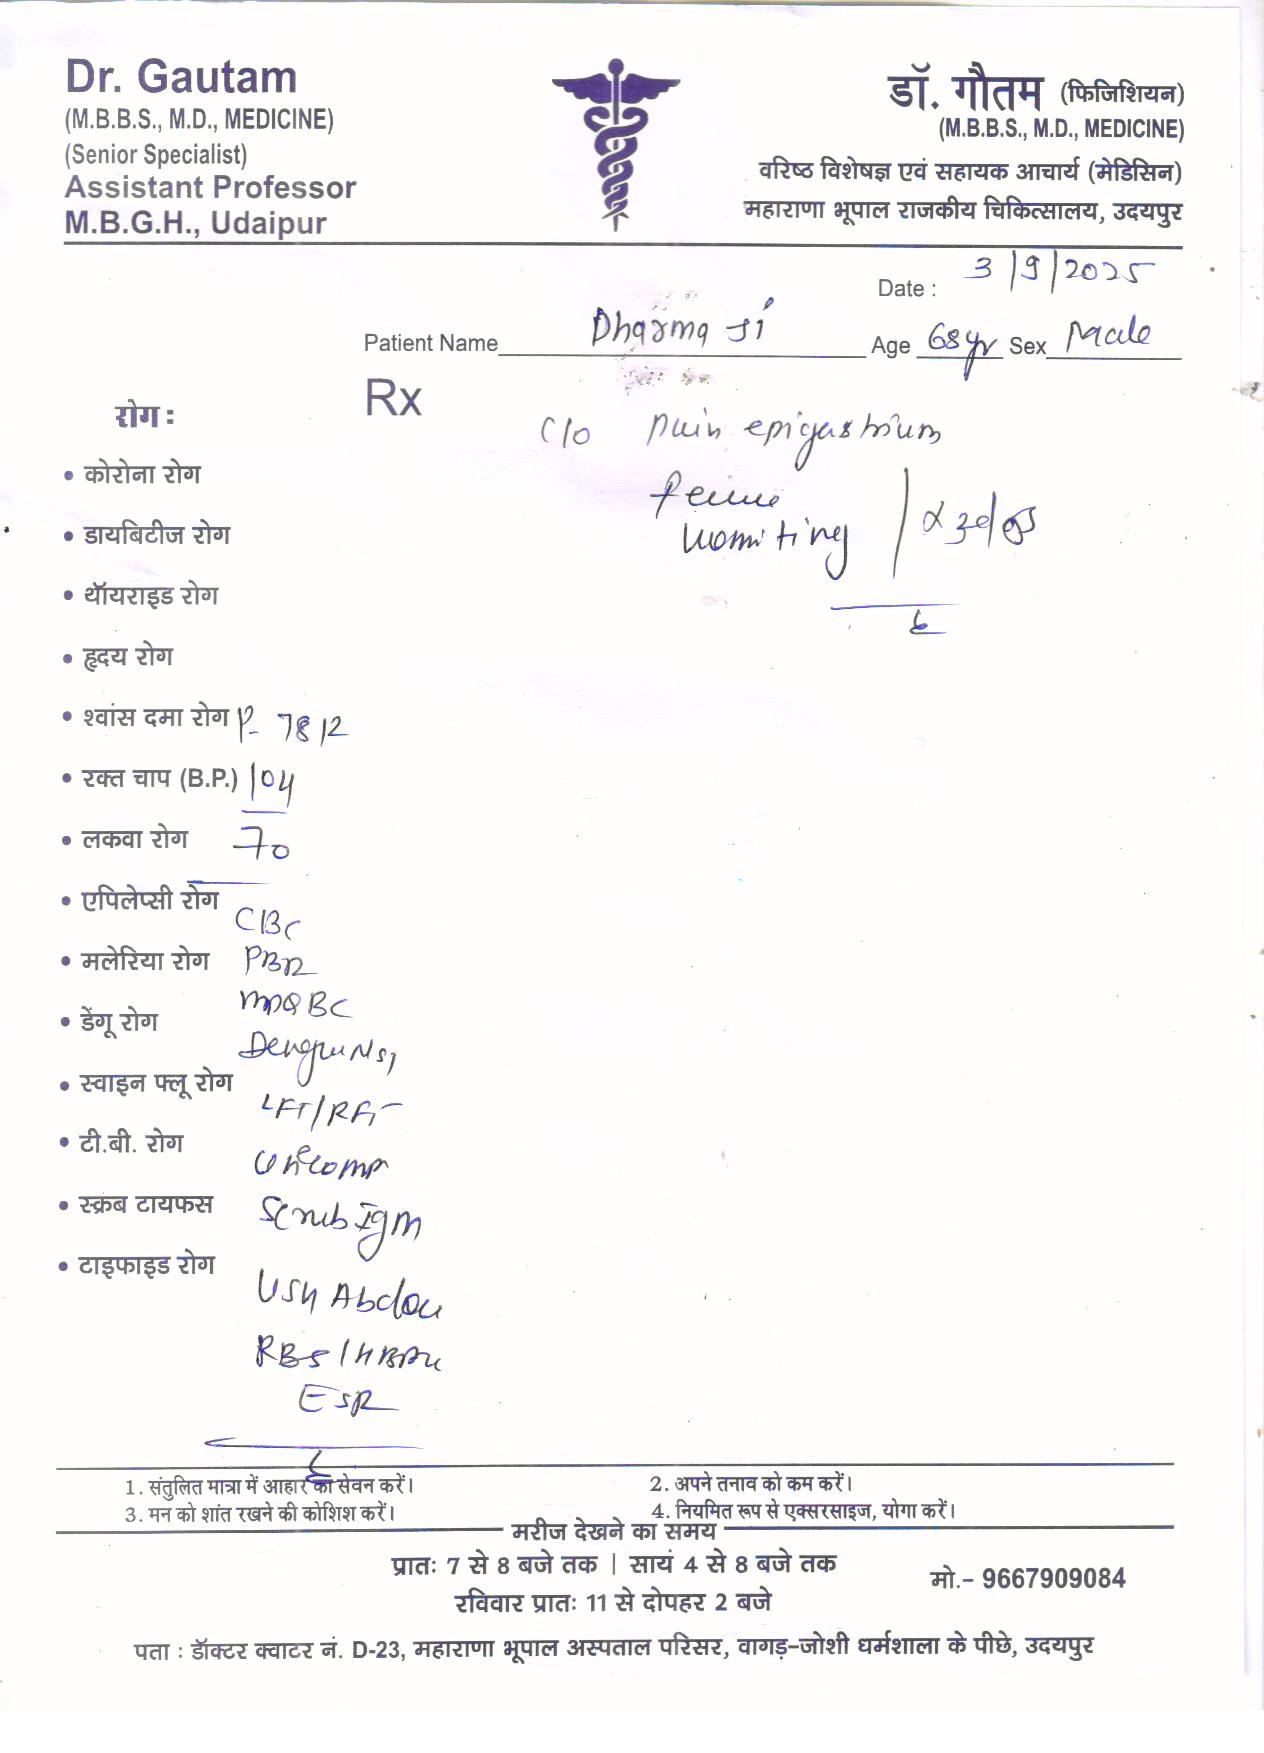 Dr. Gautam
(M.B.B.S., M.D., MEDICINE)
(Senior Specialist)
Assistant Professor
M.B.G.H., Udaipur
डॉ. गौतम (फिजिशियन)
(M.B.B.S., M.D., MEDICINE)
वरिष्ठ विशेषज्ञ एवं सहायक आचार्य (मेडिसिन)
महाराणा भूपाल राजकीय चिकित्सालय, उदयपुर
Date : 3/9/2025
Patient Name Dharma Ji Age 68 yr Sex Male
Rx
C/o pain epigastrium
vomiting
रोग :
• कोरोना रोग
• डायबिटीज रोग
• थॉयराइड रोग
• हृदय रोग
• श्वांस दमा रोग P- 78/2
• रक्त चाप (B.P.) 104
• लकवा रोग 70
• एपिलेप्सी रोग
CBC
• मलेरिया रोग
• डेंगू रोग
MPQBC
Dengue NS1
• स्वाइन फ्लू रोग
LFT/RFT
• टी.बी. रोग
• स्क्रब टायफस
Scrub IgM
• टाइफाइड रोग
USG Abdo
RBS
ESR
1. संतुलित मात्रा में आहार का सेवन करें।
2. अपने तनाव को कम करें।
3. मन को शांत रखने की कोशिश करें।
4. नियमित रूप से एक्सरसाइज, योगा करें।
मरीज देखने का समय
प्रातः 7 से 8 बजे तक | सायं 4 से 8 बजे तक
रविवार प्रातः 11 से दोपहर 2 बजे
मो.- 9667909084
पता : डॅाक्टर क्वाटर नं. D-23, महाराणा भूपाल अस्पताल परिसर, वागड़-जोशी धर्मशाला के पीछे, उदयपुर